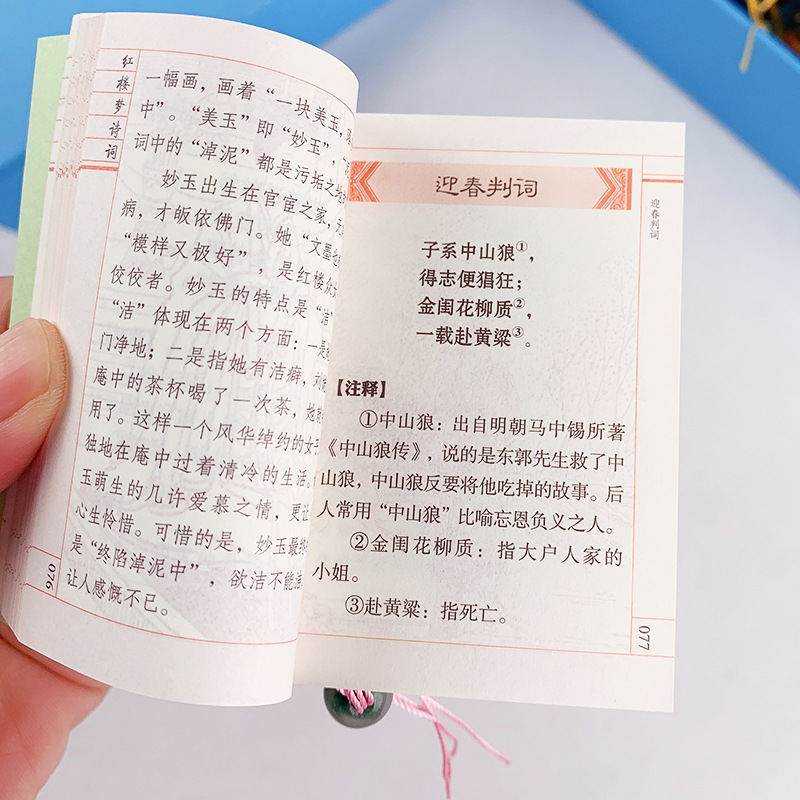 红楼梦诗词
一幅画，画着“一块美玉，
中”。“美玉”即“妙玉”，
词中的“淖泥”都是污垢之地
妙玉出生在官宦之家，
病，才皈依佛门。她“文墨也
“模样又极好”，是红楼众
佼佼者。妙玉的特点是“洁
“洁”体现在两个方面：一是
门净地；二是指她有洁癖，刘
庵中的茶杯喝了一次茶，她
用了。这样一个风华绰约的女子
独地在庵中过着清冷的生活。
玉萌生的几许爱慕之情，更让
心生怜惜。可惜的是，妙玉最终
是“终陷淖泥中”，欲洁不能洁
让人感慨不已。
076
迎春判词
迎春判词
子系中山狼①，
得志便猖狂；
金闺花柳质②，
一载赴黄粱③。
【注释】
①中山狼：出自明朝马中锡所著
《中山狼传》，说的是东郭先生救了中
山狼，中山狼反要将他吃掉的故事。后
人常用“中山狼”比喻忘恩负义之人。
②金闺花柳质：指大户人家的
小姐。
③赴黄粱：指死亡。
077